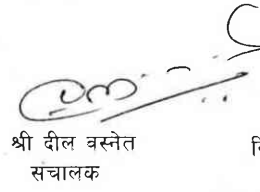 श्री दील वस्नेत
संचालक